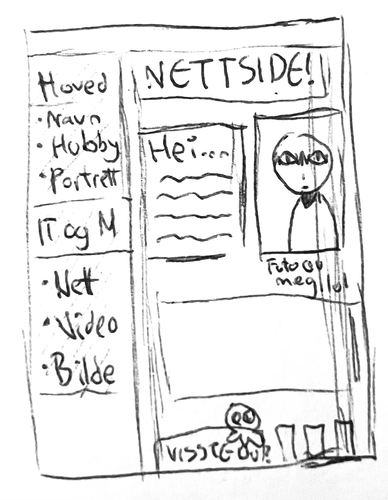 Hoved
• Navn
• Hobby
• Portrett
IT og M
• Nett
• Video
• Bilde
NETTSIDE!
Hei...
Foto av
meg lol
VISSTE DU?